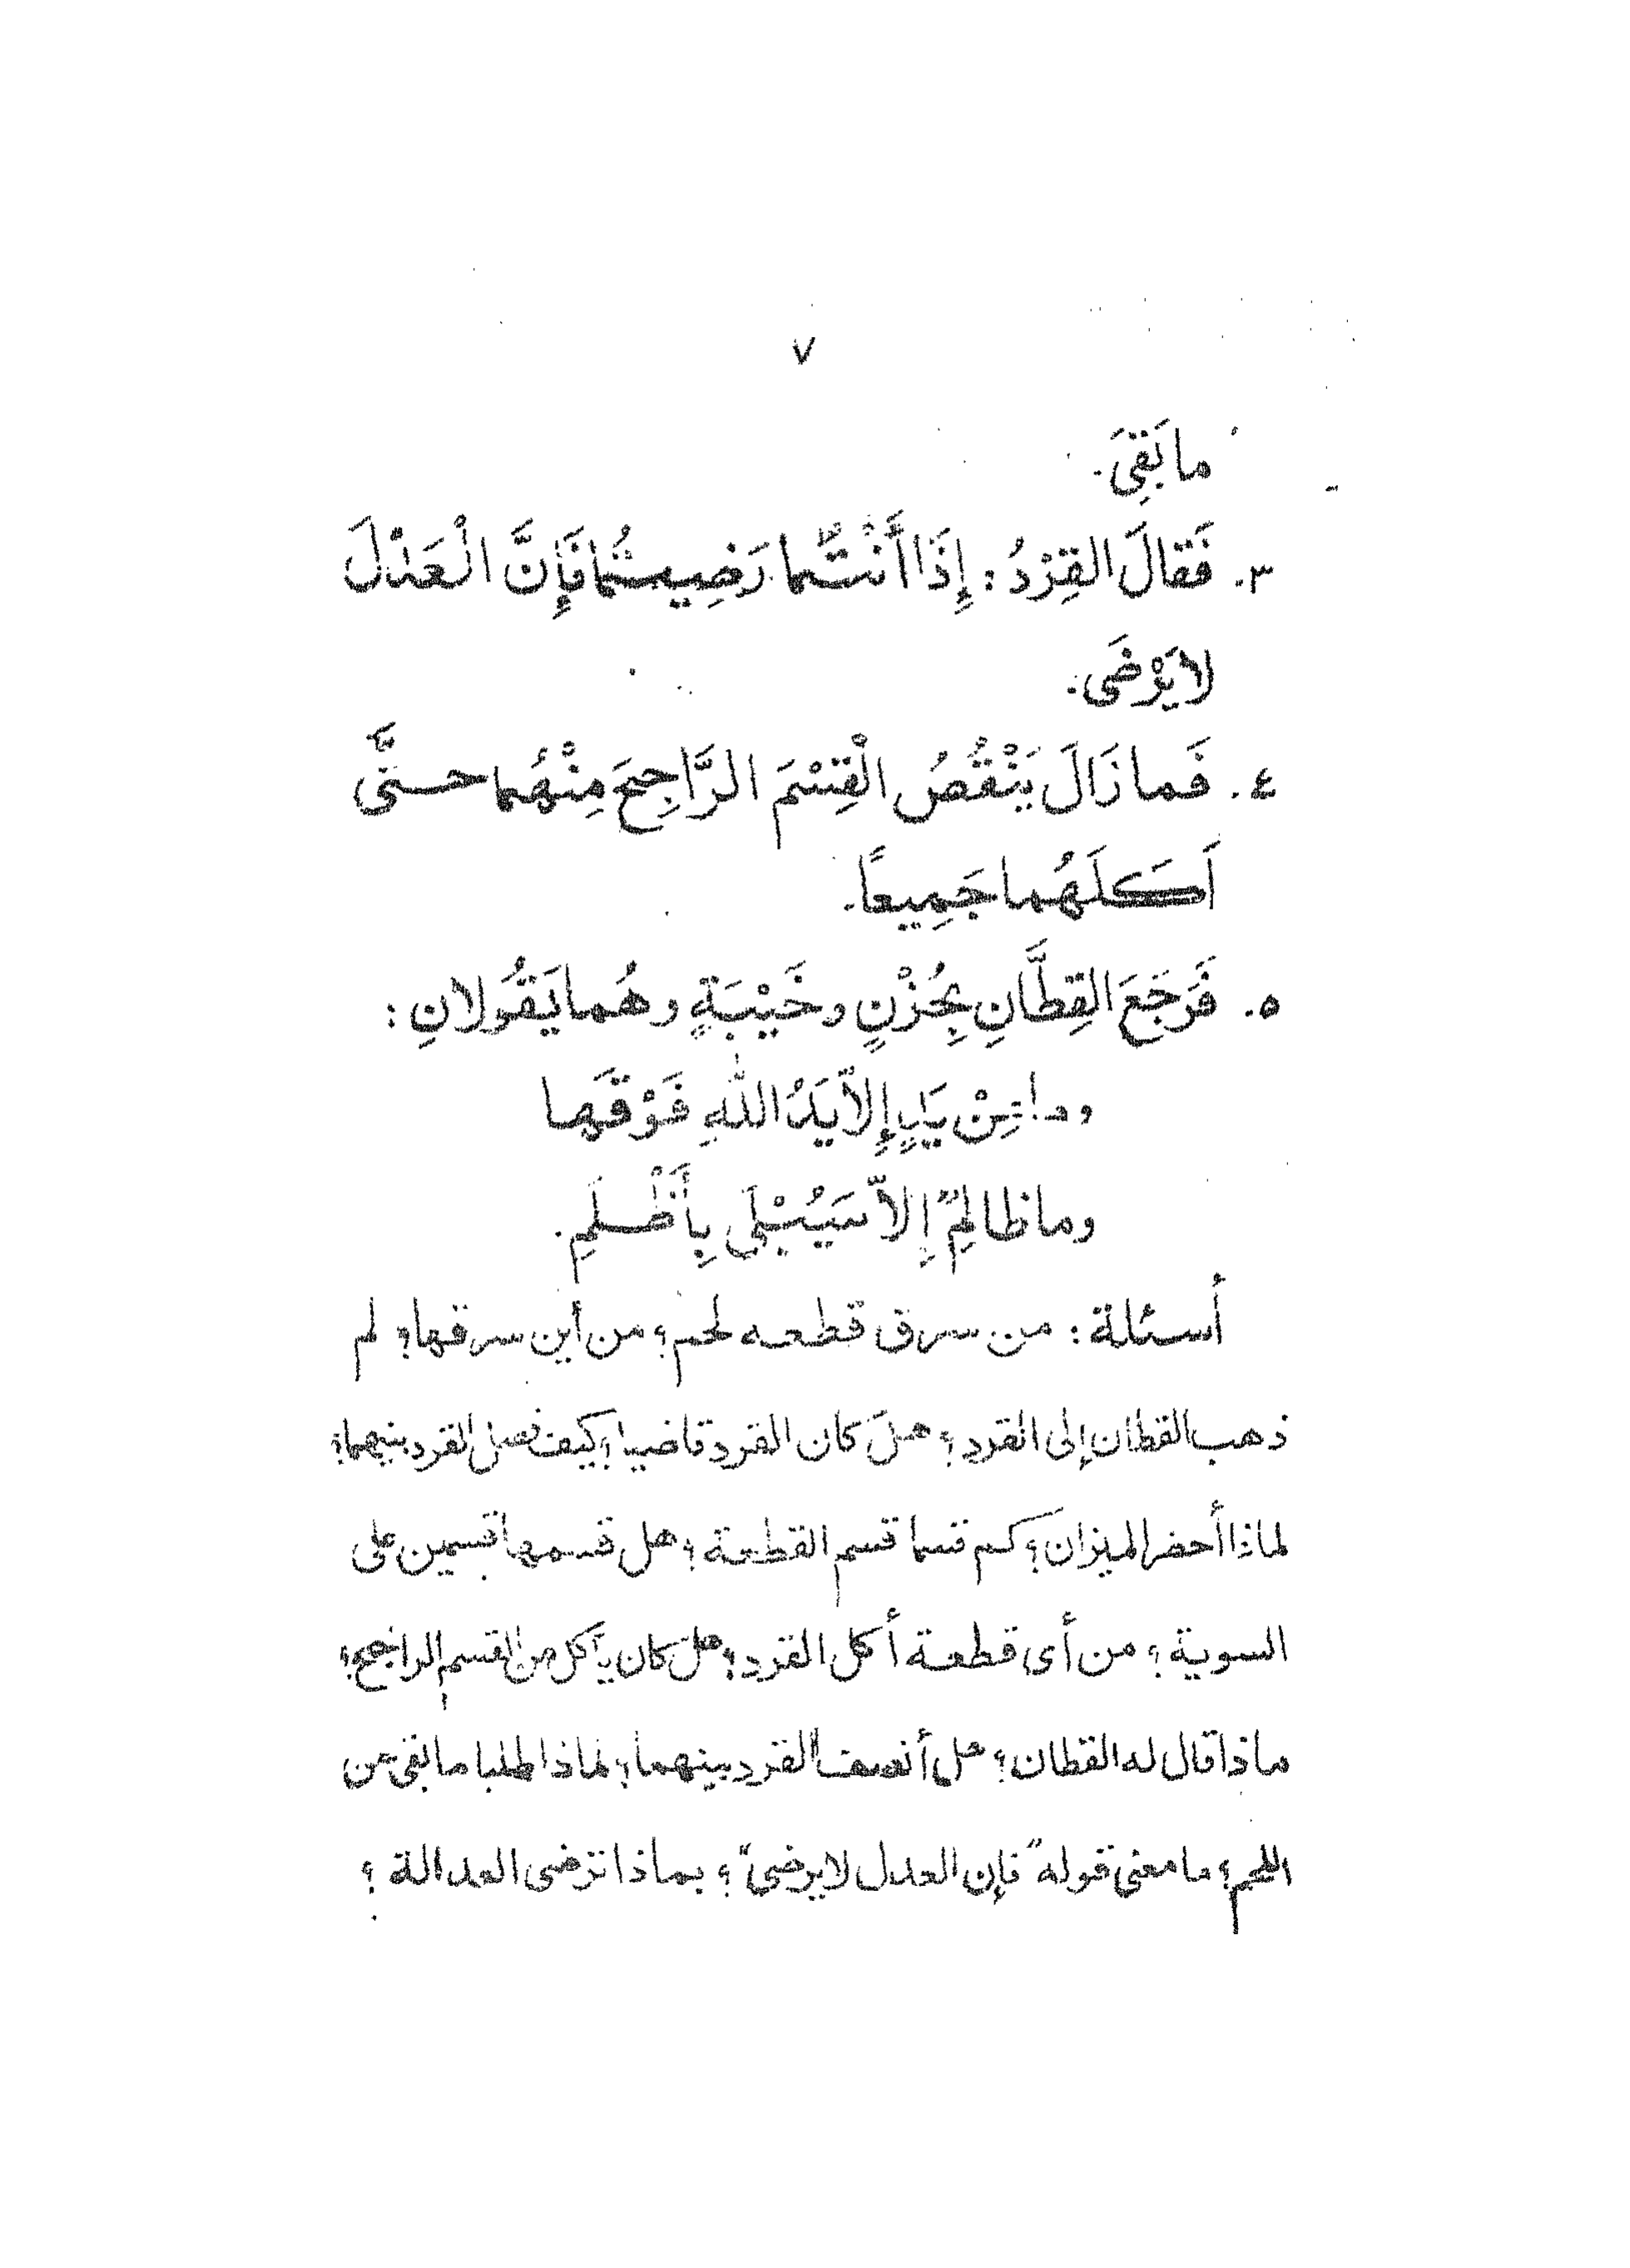 ٧
ما بَقِىَ.
٣. فَقالَ القِرْدُ: إِذَا أَنْتُما رَضِيتُما فَإِنَّ الْعَدْلَ
لا يَرْضَى.
٤. فَما زَالَ يَنْقُصُ الْقِسْمَ الرَّاجِحَ مِنْهُما حتَّى
اَكَلَهُما جَمِيعاً.
٥. فَرَجَعَ القِطَّانِ بِحُزْنٍ وخَيْبَةٍ وهُما يَقُولانِ:
وما مِنْ يَدٍ إِلاّ يَدُ اللّٰهِ فَوْقَها
وما ظالِمٌ إِلاّ سَيُبْلَى بِأَظْلَمِ.
أسئلة: من سرق قطعه لحم؟ من أين سرقها؟ لم
ذهب القطان إلى القرد؟ هل كان القرد قاضيا؟ كيف فصل القرد بينهما؟
لماذا أحضر الميزان؟ كم قسما قسم القطعة؟ هل قسمها قسمين على
السوية؟ من أى قطعة أكل القرد؟ هل كان يأكل من القسم الراجح؟
ماذا قال له القطان؟ هل أنصف القرد بينهما؟ لماذا طلبا ما بقى من
اللحم؟ ما معنى قوله "فإن العدل لا يرضى"؟ بماذا ترضى العدالة؟